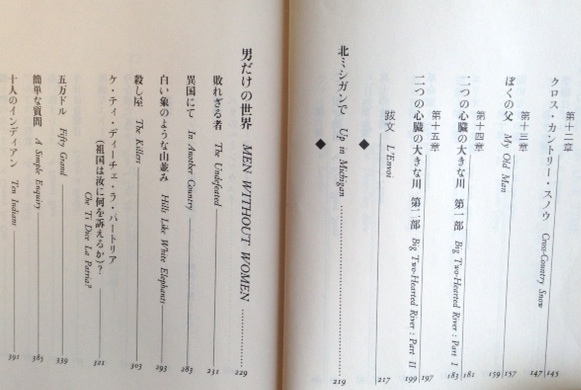 第十二章 145
クロス・カントリー・スノウ Cross-Country Snow 147
第十三章 157
ぼくの父 My Old Man 159
第十四章 181
二つの心臓の大きな川 第一部 Big Two-Hearted River : Part I 183
第十五章 197
二つの心臓の大きな川 第二部 Big Two-Hearted River : Part II 199
跋文 L'Envoi 217
◆
北ミシガンで Up in Michigan 219
◆
男だけの世界 MEN WITHOUT WOMEN 229
敗れざる者 The Undefeated 231
異国にて In Another Country 283
白い象のような山並み Hills Like White Elephants 293
殺し屋 The Killers 303
ケ・ティ・ディーチェ・ラ・パートリア
(祖国は汝に何を訴えるか)? Che Ti Dice La Patria? 321
五万ドル Fifty Grand 339
簡単な質問 A Simple Enquiry 385
十人のインディアン Ten Indians 391